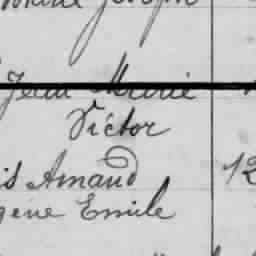 Joseph
Jean Marie
Victor
is Amand 12
gène Emile